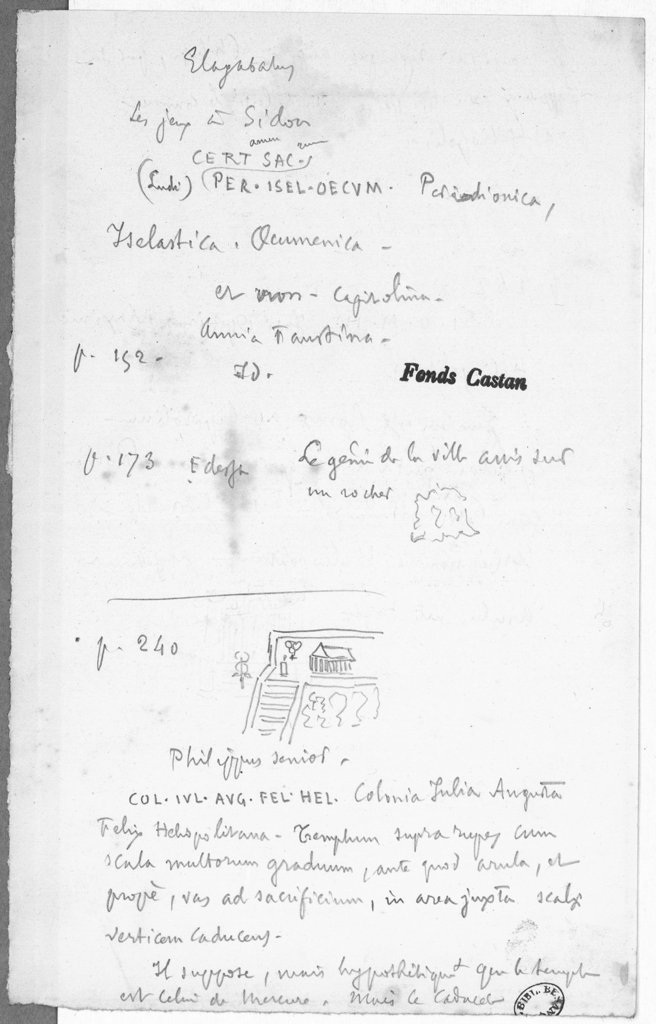 Elagabalus
Les jeux à Sidon
CERT SAC.
(Ludi) PER. ISEL. OECVM. Periodionica,
Iselastica, Oecumenica -
et non - Capitolina -
Annia Faustina -
p. 192 -
Id.
Fonds Castan
p. 173 Edessa Le génie de la ville assis sur
un rocher
p. 240
Philippus senior.
COL. IVL. AVG. FEL. HEL. Colonia Julia Augusta
Felix Heliopolitana - Templum supra rupes cum
scala multorum graduum, ante quod arula, et
propè, vas ad sacrificium, in area juxta scalæ
verticem caduceus -
Il suppose, mais hypothétiqut que le temple
est celui de Mercure. Mais le Caducée
BIBL. BE